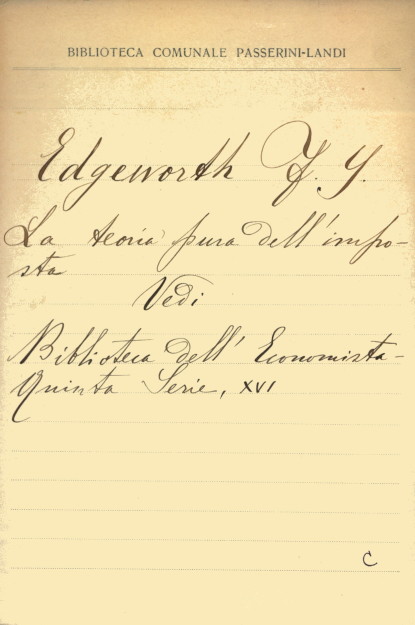 BIBLIOTECA COMUNALE PASSERINI-LANDI
Edgeworth F. Y.
La teoria pura dell'impo-
sta
Vedi
Biblioteca dell'Economista-
Quinta Serie, XVI
C